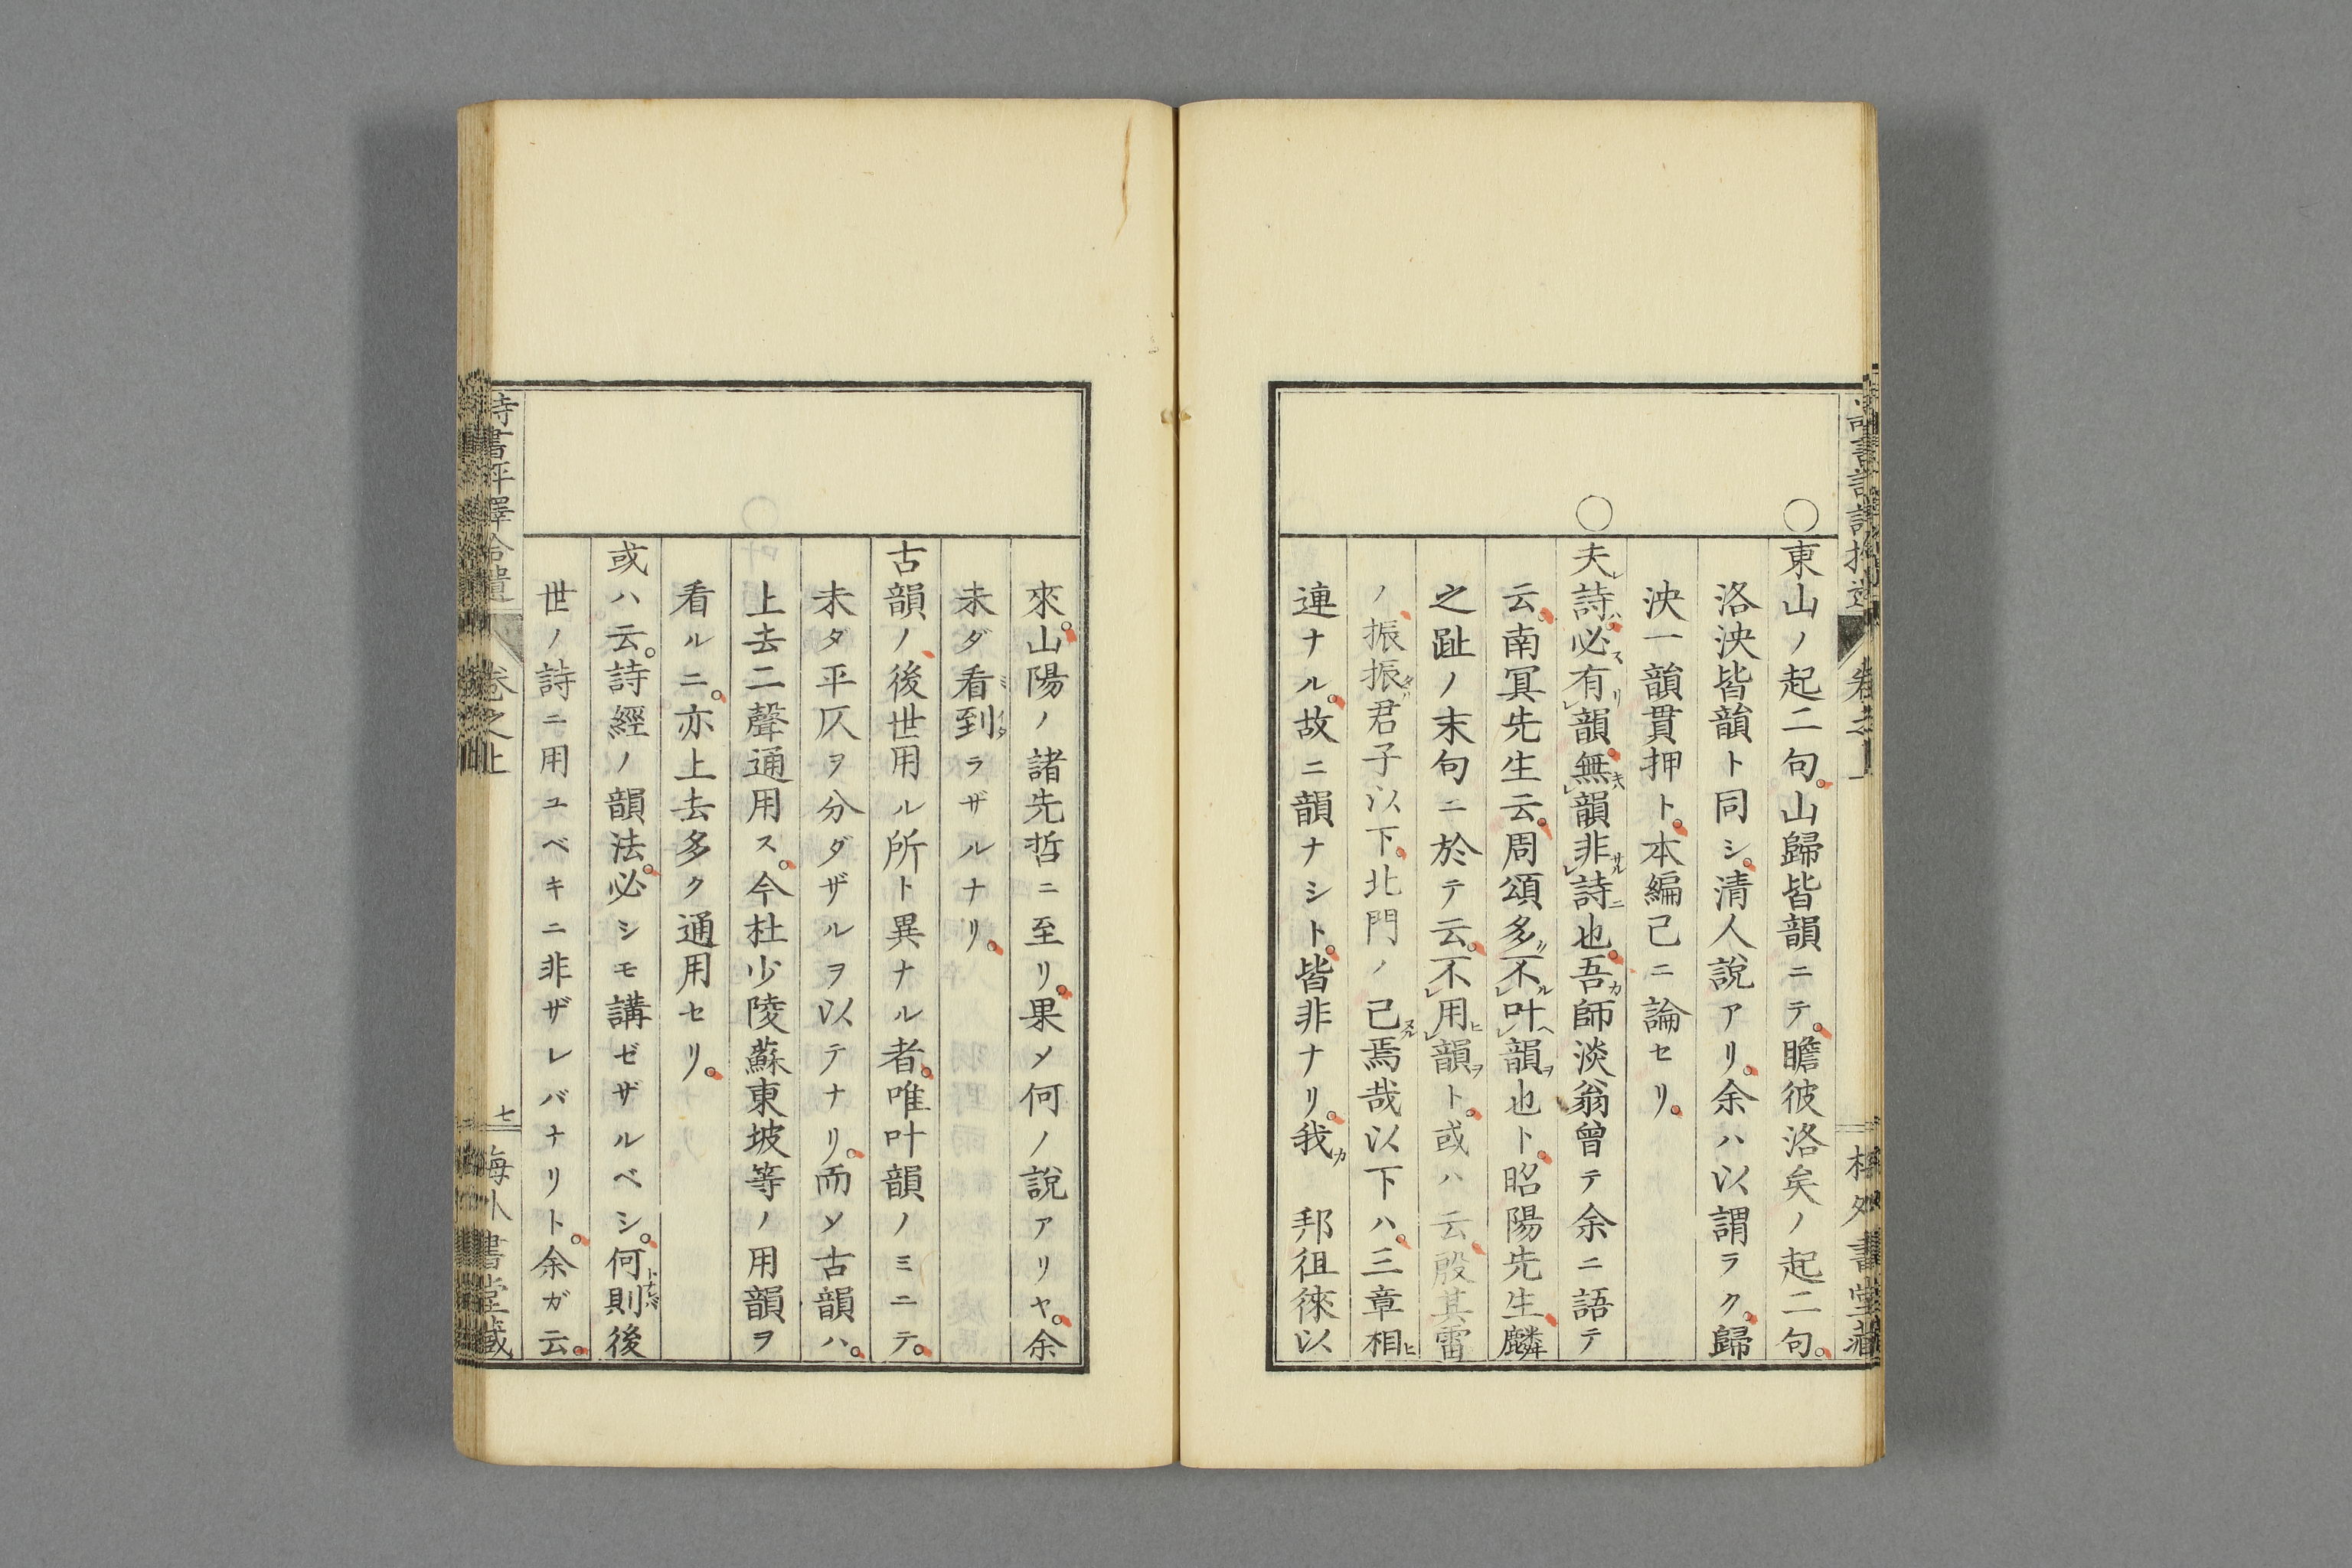 ○東山ノ起二句。山歸皆韻ニテ。瞻彼洛矣ノ起二句。
洛泱皆韻ト同シ。清人說アリ。余ハ以謂ラク。歸
泱一韻貫押ト。本編己ニ論セリ。
○夫レ詩ハ必ス有リレ韻。無キレ韻非サルレ詩ニ也。吾カ師淡翁曾テ余ニ語テ
云。南冥先生云。周頌多シ不ルレ叶ヘレ韻ヲ也ト。昭陽先生。麟
之趾ノ末句ニ於テ云。不レ用ヒレ韻ヲト。或ハ云。殷其雷
ノ。振振タル君子以下。北門ノ已ヌル焉哉以下ハ。三章相ヒ
連ナル。故ニ韻ナシト。皆非ナリ。我カ 邦徂徠以
來。山陽ノ諸先哲ニ至リ。果メ何ノ說アリヤ。余
未ダ看ミ到イタラザルナリ。
古韻ノ後世用ル所ト異ナル者。唯叶韻ノミニテ。
未タ平仄ヲ分ダザルヲ以テナリ。而ソ古韻ハ。
上去二聲通用ス。今杜少陵蘇東坡等ノ用韻ヲ
看ルニ。亦上去多ク通用セリ。
或ハ云。詩經ノ韻法。必シモ講ゼザルベシ。何則トナレバ後
世ノ詩ニ用ユベキニ非ザレバナリト。余ガ云。
詩書評釋拾遺 卷之上 七 梅外書堂藏